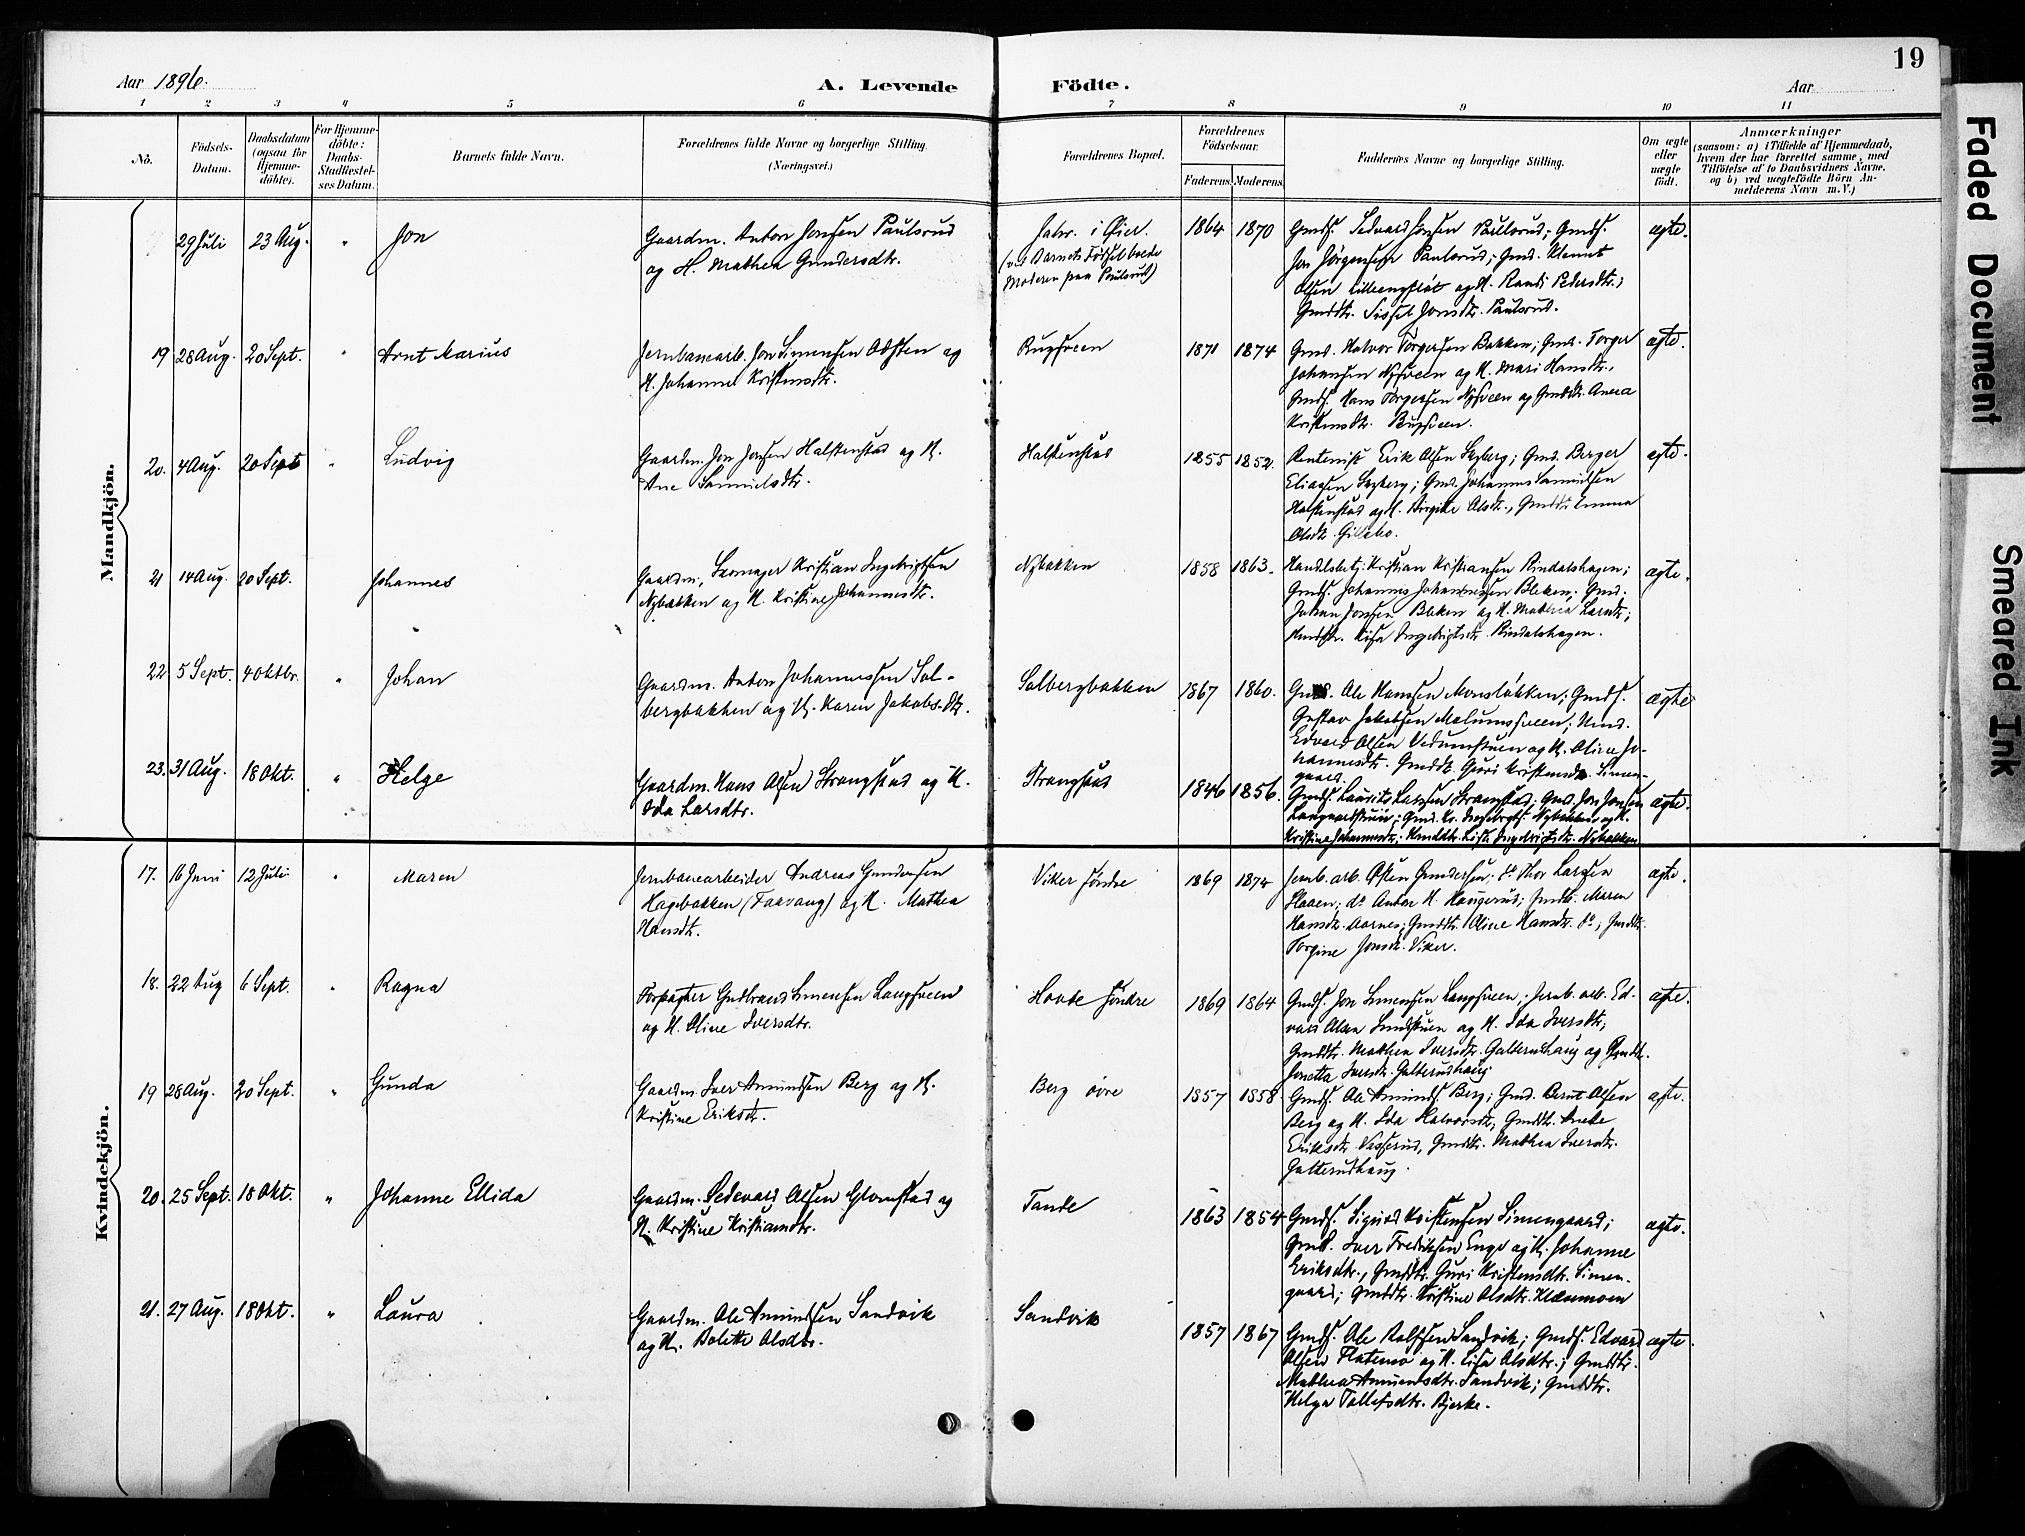 19
Aar 1896.
A. Levende
Födte.
Aar
1 2 3 4 5 6 7 8 9 10 11
No.
Födsels-
Datum.
Daabsdatum
(ogsaa for
Hjemme-
döbte).
For Hjemme-
döbte:
Daabs-
Stadfæstel-
ses Datum.
Barnets fulde Navn.
Forældrenes fulde Navne og borgerlige Stilling.
(Næringsvei.)
Forældrenes Bopæl.
Forældrenes
Födselsaar.
Faderens.
Moderens.
Faddernes Navne og borgerlige Stilling.
Om ægte
eller
uægte
födt.
Anmærkninger
(saasom: a) i Tilfælde af Hjemmedaab,
hvem der har forrettet samme, med
Tilföielse af to Daabsvidners Navne,
og b) ved uægtefödte Börn An-
melderens Navn m. V.)
Mandkjön.
29 Juli 23 Aug. " Jon
Gaardm. Anton Jonsen Paulsrud
og H. Mathea Gundersdtr.
i Øier.
(ved Barnets Fødsel boede
Moderen paa Paulsrud)
1864 1870
Gmds. Sedvard Jonsen Paulsrud; Gmds.
Jon Jørgensen Paulsrud; Gmd. Klemet
Olsen Lilleengsløt og H. Randi Pedersdtr.;
Gmddtr. Sissel Jonsdtr. Paulsrud.
ægte.
19 28 Aug. 20 Sept. " Arnt Marius
Jernbanearb. Jon Simensen Odsten og
H. Johanne Kristensdtr.
1871 1874
Gmd. Halvor Torgersen Bakken; Gmd. Torger
Johansen Nysveen og H. Mari Hansdtr.,
Gmds. Hans Torgersen Nysveen og Gmddtr. Anna
Kristensdtr.
ægte.
20. 4 Aug. 20 Sept " Ludvig
Gaardm. Jon Jonsen Halstenstad og H.
Ane Samuelsdtr.
Halstenstad
1855 1852.
Erik Olsen Skyberg; Gmd. Berger
Eliasen Skyberg; Gmd. Johannes Samuelsen
Halstenstad og H. Birgitte Olsdtr., Gmddtr. Emma
Olsdtr. Gillebo.
ægte.
21 14 Aug. 20 Sept. Johannes
"
Gaardm., Skomager Kristian Ingebrigtsen
Nybakken og H. Kristine Johannesdtr.
Nybakken
1858 1863.
Handelsbetj. Kristian Kristiansen Rindalshagen;
Gmds. Johannes Johannessen Bleken; Gmd.
Johan Jonsen Bleken og H. Mathea Larsdtr.;
Lisa Ingebrigtsdtr. Rindalshagen.
ægte.
22 5 Sept. 4 Oktbr. " Johan
Gaardm. Anton Johannessen Sol-
bergbakken og H. Karen Jakobsdtr.
Solbergbakken
1867 1860.
Gmd. Ole Hansen Monsløkken; Gmds.
Gustav Jakobsen Melumsveen; Hmd.
Edvard Olsen Vedumstuen og H. Olina Jo-
hannesdtr. Gmddtr. Guri Kristensdtr. Simen-
gaard.
ægte
23. 31 Aug. 18 Okt. " Helge
Gaardm. Hans Olsen Strangstad og H.
Ida Larsdtr.
Strangstad
1846 1856.
Gmds. Laurits Larsen Strangstad; Gmd. Jon Jonsen
Langaardstuen; Gmd. Kr. Ingebrigts. Nybakken og H.
Kristine Johannesdtr. Hmddtr. Lisa Ingebrigtsdtr. Nybakken
ægte.
Kvindekjön.
17. 16 Juni 12 Juli " Maren
Jernbanearbeider Andreas Gundersen
Hagebakken (Faavang) og H. Mathea
Hansdtr.
Viker søndre
1869 1874
Jernb. arb. Østen Gundersen; do Thor Larsen
Haaen; do Anton H. Haugerud; Maren
Hansdtr. Aarnes; Gmddtr. Oline Hansdtr. do; Gmddtr.
Torgine Jonsdtr. Viker.
ægte.
18. 22 Aug 6 Sept. " Ragna
Forpagter Gudbrand Simensen Langsveen
og H. Oline Iversdtr.
Hovde søndre
1869 1864
Gmds. Jon Simensen Langsveen; Jernb. arb. Ed-
vard Olsen Lundstuen og H. Ida Iversdtr.,
Gmddtr. Mathea Iversdtr. Galterudhaug og Gmddtr.
Jonetta Iversdtr. Galterudhaug.
ægte.
19 28 Aug. 20 Sept. " Gunda
Gaardm. Iver Amundsen Berg og H.
Kristine Eriksdtr.
Berg øvre
1857 1858
Gmds. Ole Amunds. Berg; Gmd. Bernt Olsen
Berg og H. Ida Halvorsdtr., Gmddtr. Aneke
Eriksdtr. Vasrud, Gmddtr. Mathea Iversdtr.
Galterudhaug.
ægte.
20. 25 Sept. 18 Okt. " Johanne Ellida
Gaardm. Sedevard Olsen Glomstad og
H. Kristine Kristiansdtr.
Tande
1863 1854
Gmds. Sigurd Kristensen Simengaard;
Gmd. Iver Fredriksen Enge og H. Johanne
Eriksdtr., Gmddtr. Guri Kristensdtr. Simen-
gaard; Gmddtr. Kristine Olsdtr. Klævmoen
ægte.
21. 27 Aug. 18 Okt. " Laura
Gaardm. Ole Amundsen Sandvik
og H. Bolette Olsdtr.
Sandvik
1857 1867
Gmds. Ole Rolfsen Sandvik; Gmds. Edvard
Olsen Flatemo og H. Lisa Olsdtr.; Gmddtr.
Mathea Amundsdtr. Sandvik; Gmddtr.
Helga Tollefsdtr. Bjerke.
ægte.
Faded Document
Smeared Ink